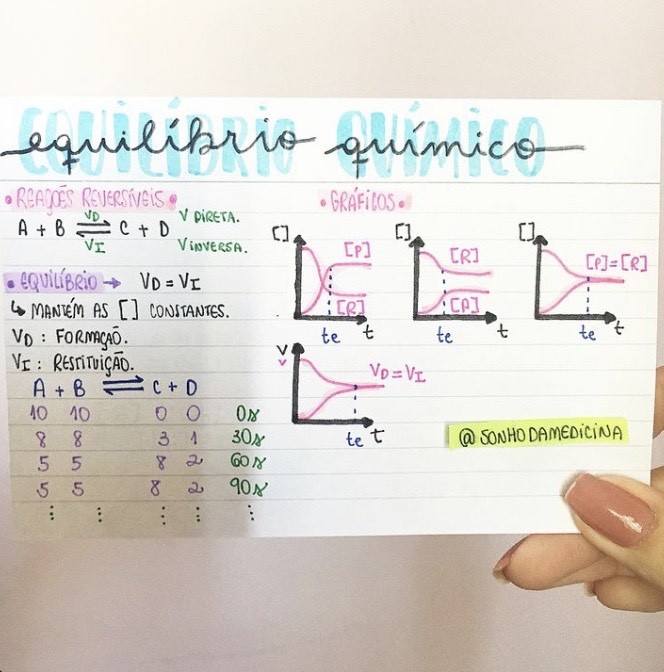 EQUILÍBRIO QUÍMICO
equilíbrio químico
• REAÇÕES REVERSÍVEIS •
A + B ⇌ C + D
VD
VI
V DIRETA.
V INVERSA.
• EQUILÍBRIO → VD = VI
↳ MANTÉM AS [ ] CONSTANTES.
VD : FORMAÇÃO.
VI : RESTITUIÇÃO.
A + B ⇌ C + D
10 10 0 0 0s
8 8 3 1 30s
5 5 8 2 60s
5 5 8 2 90s
⋮ ⋮ ⋮ ⋮ ⋮
• GRÁFICOS •
[ ] [P] [R] te t
[ ] [R] [P] te t
[ ] [P]=[R] te t
V v VD = VI te t
@SONHODAMEDICINA